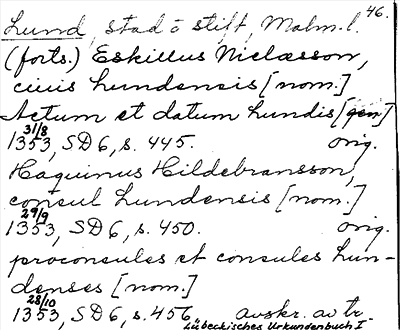 46.
Lund, stad o stift, Malm. l.
(forts.) Eskillus Niclæsson,
ciuis lundensis [nom.]
Actum et datum lundis [gen]
31/8
1353, SD 6, s. 445. orig.
Haquinus Hildebransson,
consul Lundensis [nom.]
29/9
1353, SD 6, s. 450. orig.
proconsules et consules lun-
denses [nom.]
28/10
1353, SD 6, s. 456, avskr. av tr.
Lübeckisches Urkundenbuch I